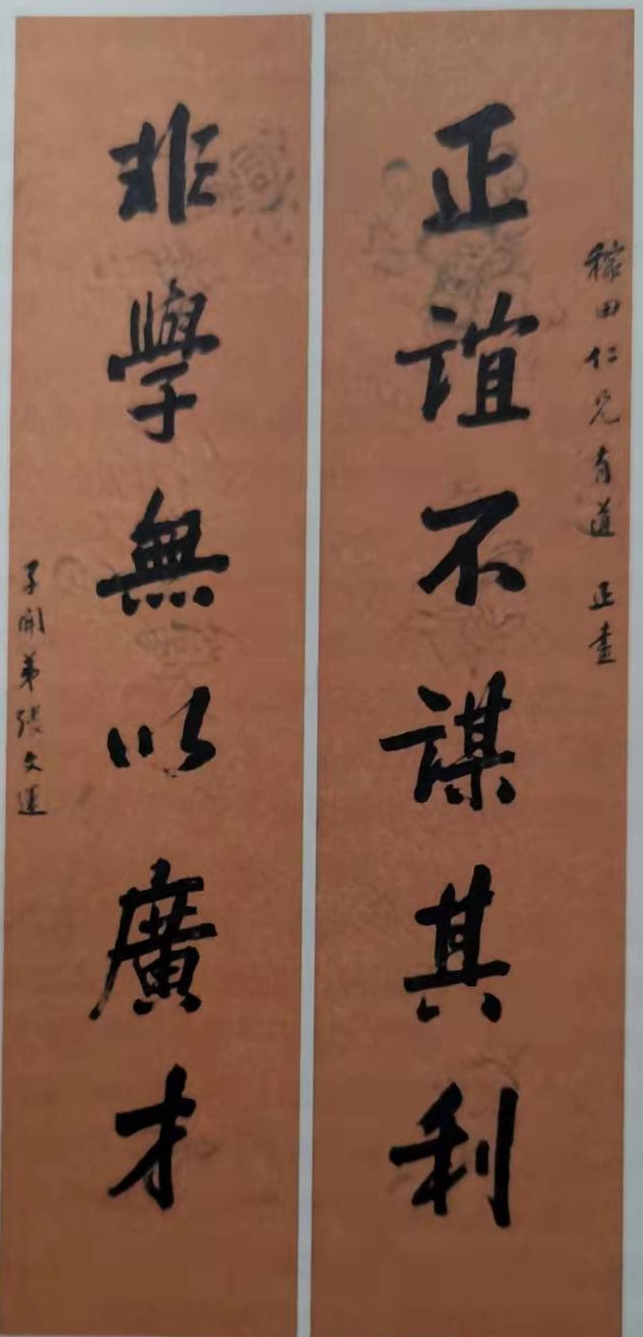 稼田仁兄有道 正書
正誼不謀其利
非學無以廣才
子開弟張文運